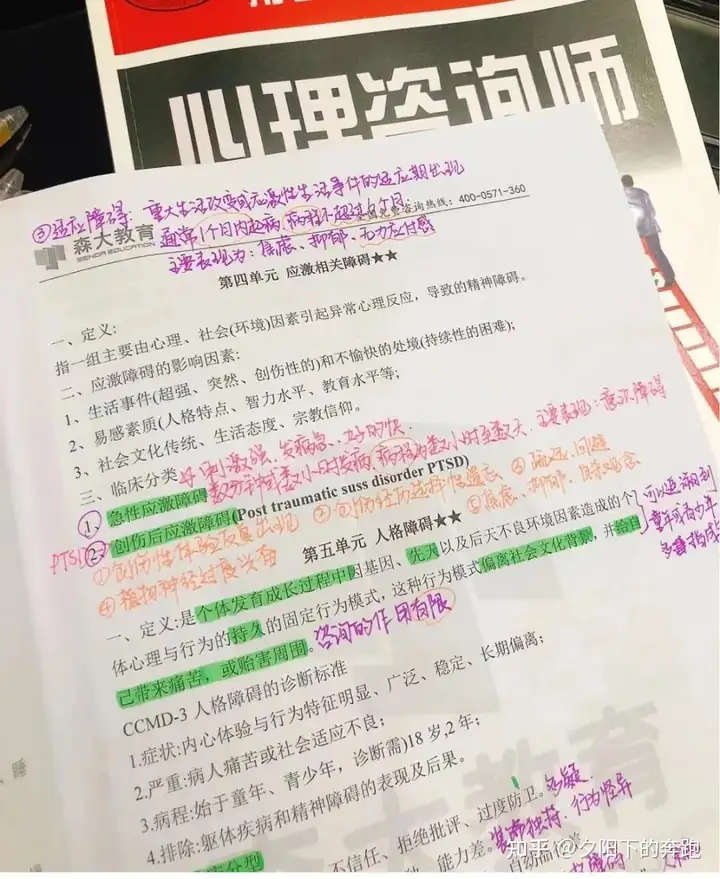 心理咨询师
③适应障碍：重大生活改变或应激性生活事件的适应期出现
通常1个月内起病，病程不超过6个月.
主要表现为：焦虑、抑郁、无力应付感
森大教育
SENDA EDUCATION
咨询热线：400-0571-360
第四单元 应激相关障碍★★
一、定义:
指一组主要由心理、社会(环境)因素引起异常心理反应，导致的精神障碍。
二、应激障碍的影响因素:
1、生活事件(超强、突然、创伤性的)和不愉快的处境(持续性的困难);
2、易感素质(人格特点、智力水平、教育水平等;
3、社会文化传统、生活态度、宗教信仰。
三、临床分类
刺激强、发病急、好的快.
主要表现：意识障碍
1、急性应激障碍
数分钟或数小时发病，病程为数小时至数天、
PTSD
2、创伤后应激障碍(Post traumatic suss disorder PTSD)
①创伤性体验反复出现
④植物神经过度兴奋
⑤焦虑、抑郁、自杀观念
第五单元 人格障碍★★
一、定义:是个体发育成长过程中因基因、先天以及后天不良环境因素造成的个
体心理与行为的持久的固定行为模式，这种行为模式偏离社会文化背景，并给自
己带来痛苦，或贻害周围。
可以追溯到
童年或青少年
咨询的作用有限
CCMD-3 人格障碍的诊断标准
1.症状:内心体验与行为特征明显、广泛、稳定、长期偏离;
2.严重:病人痛苦或社会适应不良;
3.病程:始于童年、青少年，诊断需)18 岁,2 年;
4.排除:躯体疾病和精神障碍的表现及后果。
不信任、拒绝批评、过度防卫。多疑.
能力差。
行为怪异
森大教育
知乎 @夕阳下的奔跑